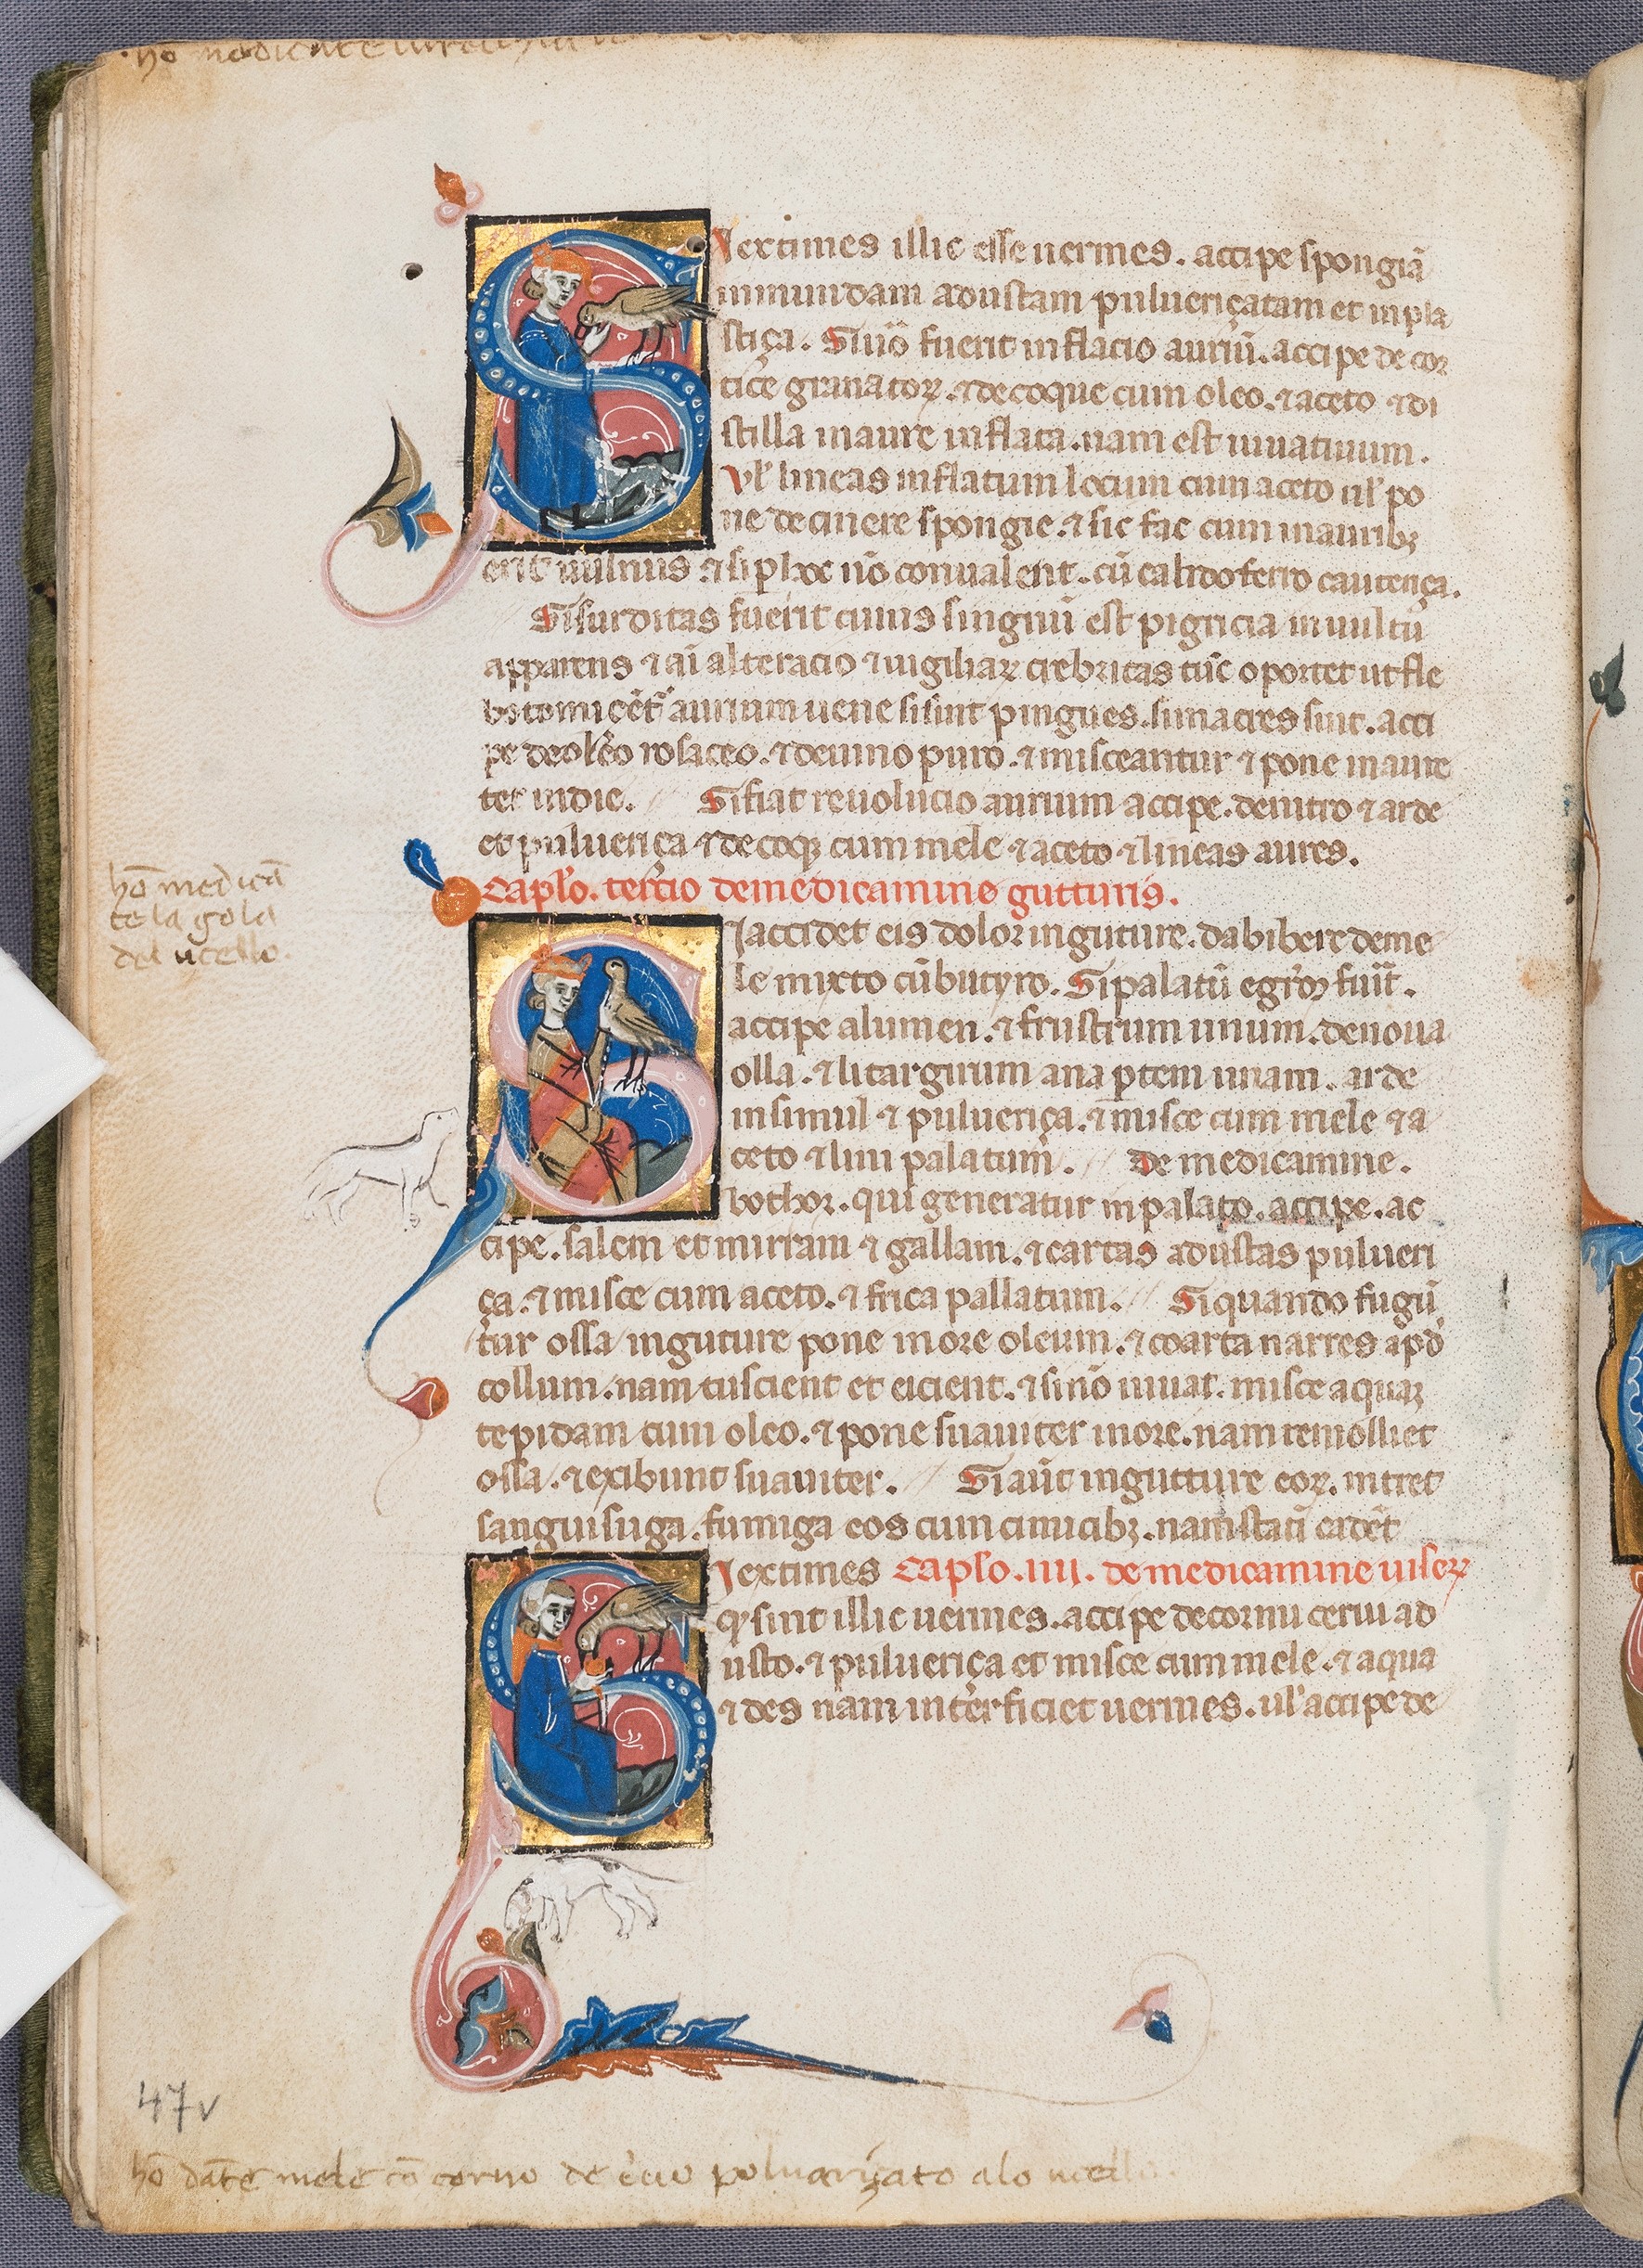 ho medicante
Siextimes illic esse uermes. accipe spongiā
inmundam adustam pulueriçatam et inpla
stiça. Siūo fuerit inflacio auriū. accipe de cor
tice granatoꝝ. ⁊decoque cum oleo. ⁊aceto ⁊di
stilla inaure inflata. nam est iuuatiuum.
Vl' lineas inflatum locum cum aceto ul' po
ne de cinere spongie. ⁊ sic fac cum in aurib;
erit uulnus ⁊ si non conualent. cū calido ferro cauteriça.
Si surditas fuerit cuius singnū est pigricia inuultū
apparens ⁊ alteracio ⁊ uigiliaꝝ crebritas tūc oportet ut fle
botomi aurium uene si sint pingues. sin acres sint. acci
pe de oleo rosaceo. ⁊ de uino puro. ⁊ misceantur ⁊ pone inaure
ter indie. Si fiat reuolucio aurium accipe. de nitro ⁊ arde
et pulueriça ⁊ decoqꝫ cum mele ⁊ aceto ⁊ lineas aures.
Capl'o. tercio demedicamine gutturis.
Siaccidet eis dolor inguture. da bibere deme
le mixto cū butyro. Si palatū egroꝝ fuit.
accipe alumen. ⁊ frustrum unum. de noua
olla. ⁊ litargirum ana ꝑtem unam. arde
insimul ⁊ pulueriça. ⁊ misce cum mele ⁊ a
ceto ⁊ lini palatum. De medicamine.
bothor. qui generatur in palato. accipe. ac
cipe. salem et mirram ⁊ gallam. ⁊ cartas adustas pulueri
ça. ⁊ misce cum aceto. ⁊ frica pallatum. Si quando fugū
tur ossa inguture pone in ore oleum. ⁊ coarta narres apd'
collum. nam tuscient et eicient. ⁊ si nō iuuat. misce aquaꝫ
tepidam cum oleo. ⁊ pone suauiter in ore. nam remolliet
ossa. ⁊ exibunt suauiter. Si aūt ingutture eoꝝ. intret
sanguisuga. fumiga eos cum cimicib;. nam statī cadēt
Siextimes Caplo. IIII. de medicamine uiseꝝ
qꝫ sint illic uermes. accipe de cornu cerui ad
usto. ⁊ pulueriça et misce cum mele. ⁊ aqua
⁊ des nam interficiet uermes. ul' accipe de
hō medicā
te la gola
del ucello.
47v
hō dāte mele cō corno de ceruo poluarizato alo ucello.